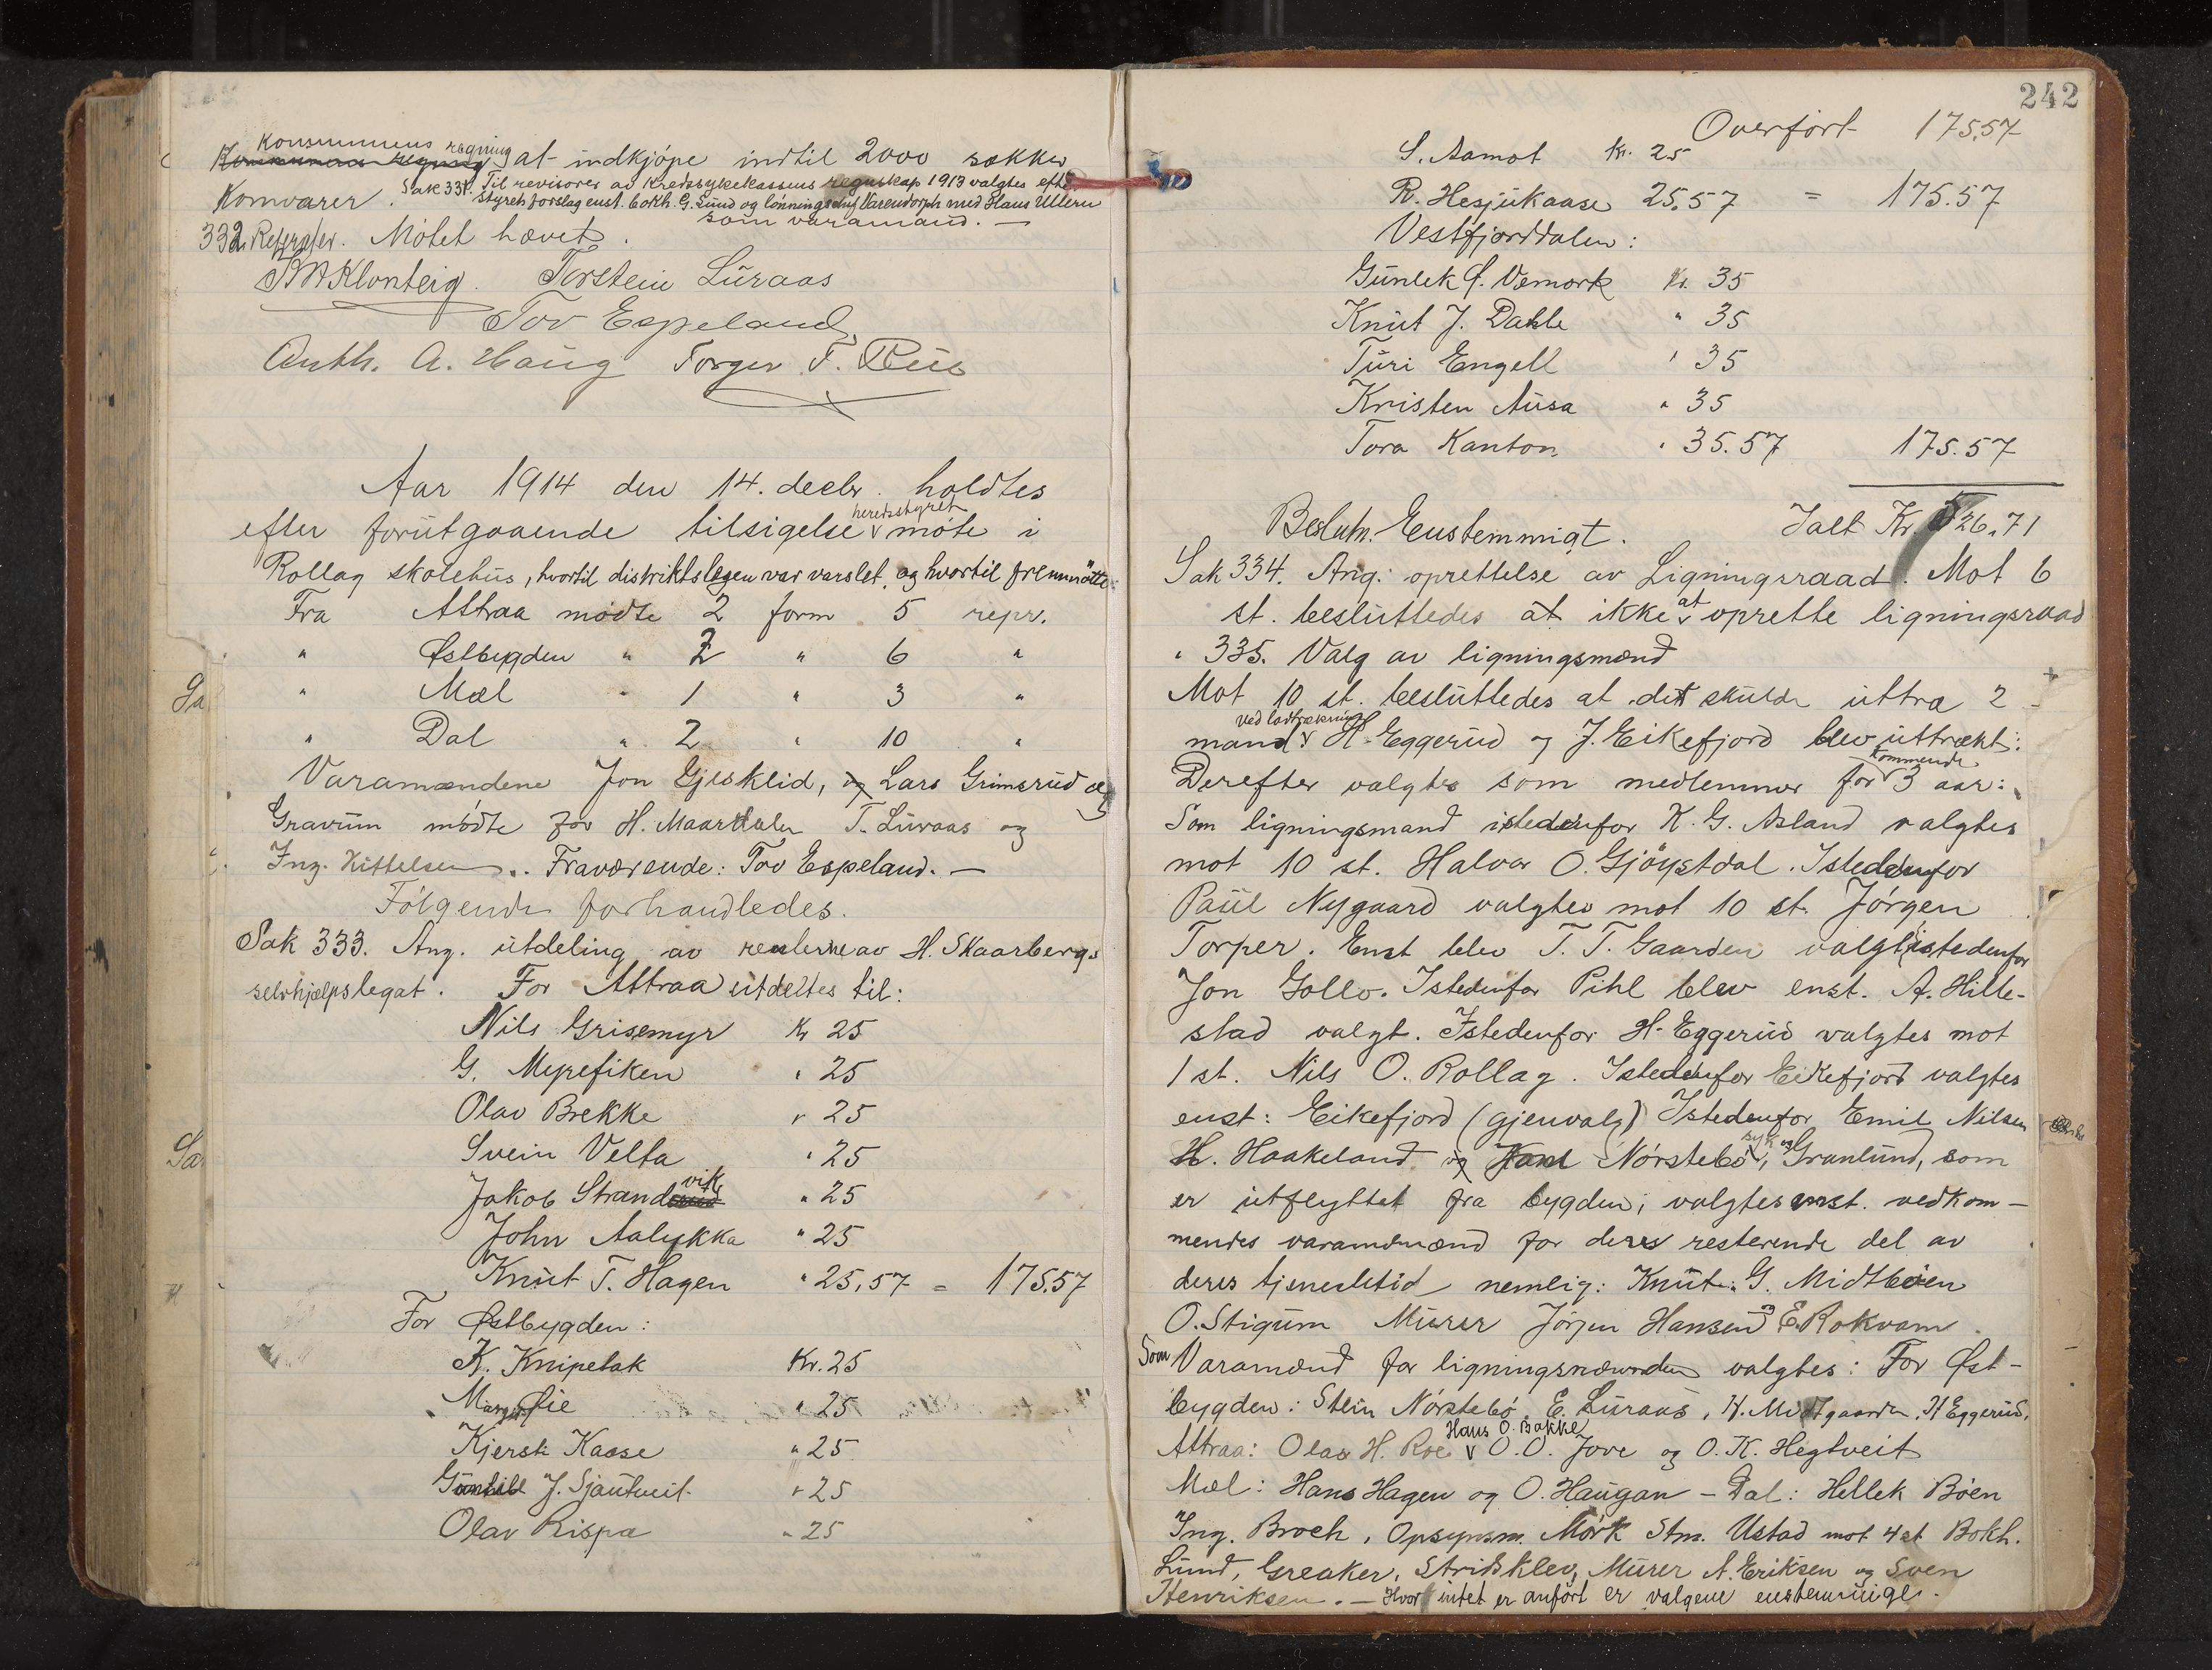 Kommunens regning
Kommunens regning at indkjøpe indtil 2000 sækker
Kornvarer. Sak 331. Til revisorer av Kredssykekassens regnskap 1913 valgtes efter
styrets forslag enst. bokh. G. Lund og lønningschef Varendorph med Hans Ullern
som varamand. —
332 Referater. Møtet hævet.
Torstein Luraas
Tov Espeland
Anth. A. Haug Torger T. Rui
Aar 1914 den 14. decbr. holdtes
efter forutgaaende tilsigelse herredsstyret møte i
Rollag skolehus, hvortil distriktslegen var varslet, og hvortil fremmøtte:
Fra Attraa mødte 2 form 5 repr.
" Østbygden " 2 " 6 "
" Mæl " 1 " 3 "
" Dal " 2 " 10 "
Varamændene Jon Gjesklid, og Lars Grimsrud og
Gravum mødte for H. Maardalen T. Luraas og
Ing. Kittelsen. Fraværende: Tov Espeland. —
Følgende forhandledes.
Sak 333. Ang. utdeling av renterne av H. Skaarbergs
selvhjælpslegat. For Attraa utdeltes til:
Nils Grisemyr Kr 25
G. Myrefiken " 25
Olav Brekke " 25
Svein Velta " 25
Jakob Strandvik " 25
John Aalykka " 25
Knut T. Hagen " 25,57 = 175.57
For Østbygden:
K. Knipetak Kr. 25
Margit Øie " 25
Kjersti Kaase " 25
Gunhild J. Sjautveit " 25
Olav Rispa " 25
242
Overført 175.57
S. Aamot Kr. 25
R. Hesjukaase 25.57 = 175.57
Vestfjorddalen:
Gunlek S. Vemork Kr. 35
Knut J. Dahle " 35
Turi Engell " 35
Kristen Ausa " 35
Tora Kanton " 35.57 175.57
Beslutn. Enstemmigt. Ialt Kr. 526.71
Sak 334. Ang. oprettelse av Ligningsraad. Mot 6
st. besluttedes at ikke at oprette ligningsraad
" 335. Valg av ligningsmænd
Mot 10 st. besluttedes at det skulde uttræ 2
mand ved lodtrækning H. Eggerud og J. Eikefjord blev uttrækt.
Derefter valgtes som medlemmer for kommende 3 aar:
Som ligningsmand istedenfor K. G. Asland valgtes
mot 10 st. Halvor O. Gjøystdal. Istedenfor
Paul Nygaard valgtes mot 10 st. Jørgen
Torper. Enst blev T. T. Gaarden valgt istedenfor
Jon Gollo. Istedenfor Pihl blev enst. A. Hille-
stad valgt. Istedenfor H. Eggerud valgtes mot
1 st. Nils O. Rollag. Istedenfor Eikefjord valgtes
enst: Eikefjord (gjenvalg) Istedenfor Emil Nilsen
H. Haakeland og Nørstebø syk og Granlund, som
er utflyttet fra bygden, valgtes enst. vedkom-
mendes varamænd for deres resterende del av
deres tjenestetid nemlig: Knut G. Midtbøen
O. Stigum Murer Jørgen Hansen og E. Rokvam.
Som Varamænd for ligningsnævnden valgtes: For Øst-
bygden: Stein Nørstebø, E. Luraas, H. Midtgaarden, H Eggerud.
Attraa: Olav H. Roe Hans O. Bakke O. O. Jove og O. K. Hegtveit
Mæl: Hans Hagen og O. Haugan — Dal: Hellek Bøen
Ing. Broch, Opsynsm. Mørk Stm. Ustad mot 4 st Bokh.
Lund, Greaker, Stridsklev, Murer A. Eriksen og Sven
Henriksen. — Hvor intet er anført er valgene enstemmige.